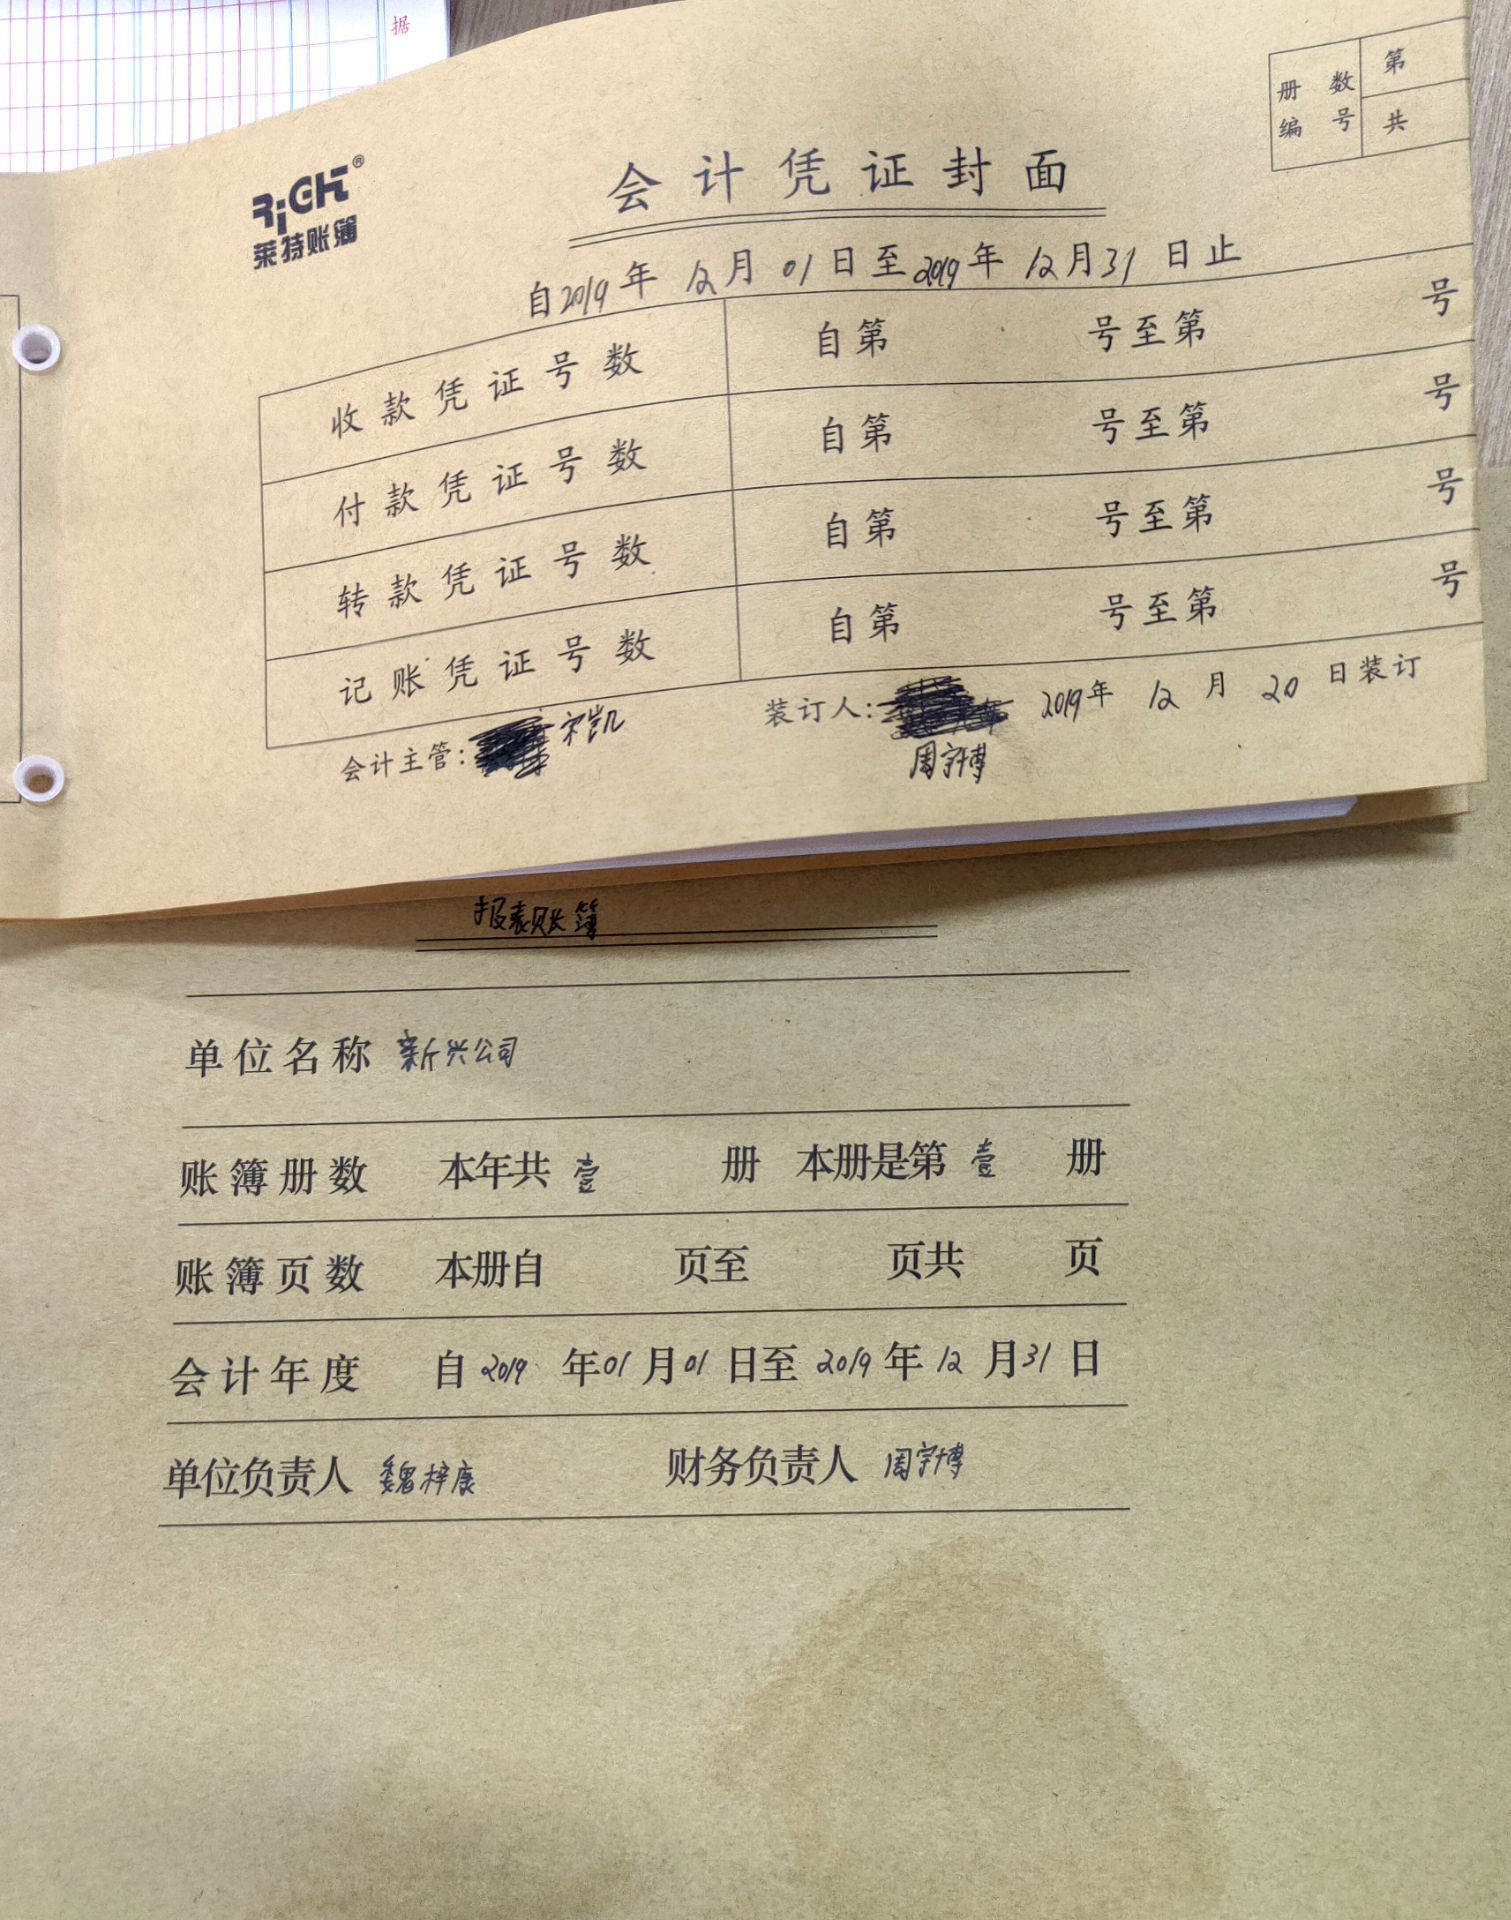 据
册数 第
编号 共
RiGHT®
莱特账簿
会计凭证封面
自2019年 12月 01日至2019年 12月31 日止
收款凭证号数 自第 号至第 号
付款凭证号数 自第 号至第 号
转款凭证号数 自第 号至第 号
记账凭证号数 自第 号至第 号
会计主管: 宋凯 装订人: 2019年 12月 20日装订
周宇博
报表账簿
单位名称 新兴公司
账簿册数 本年共 壹 册 本册是第 壹 册
账簿页数 本册自 页至 页共 页
会计年度 自 2019 年01月01日至 2019年12月31日
单位负责人 魏梓康 财务负责人 周宇博